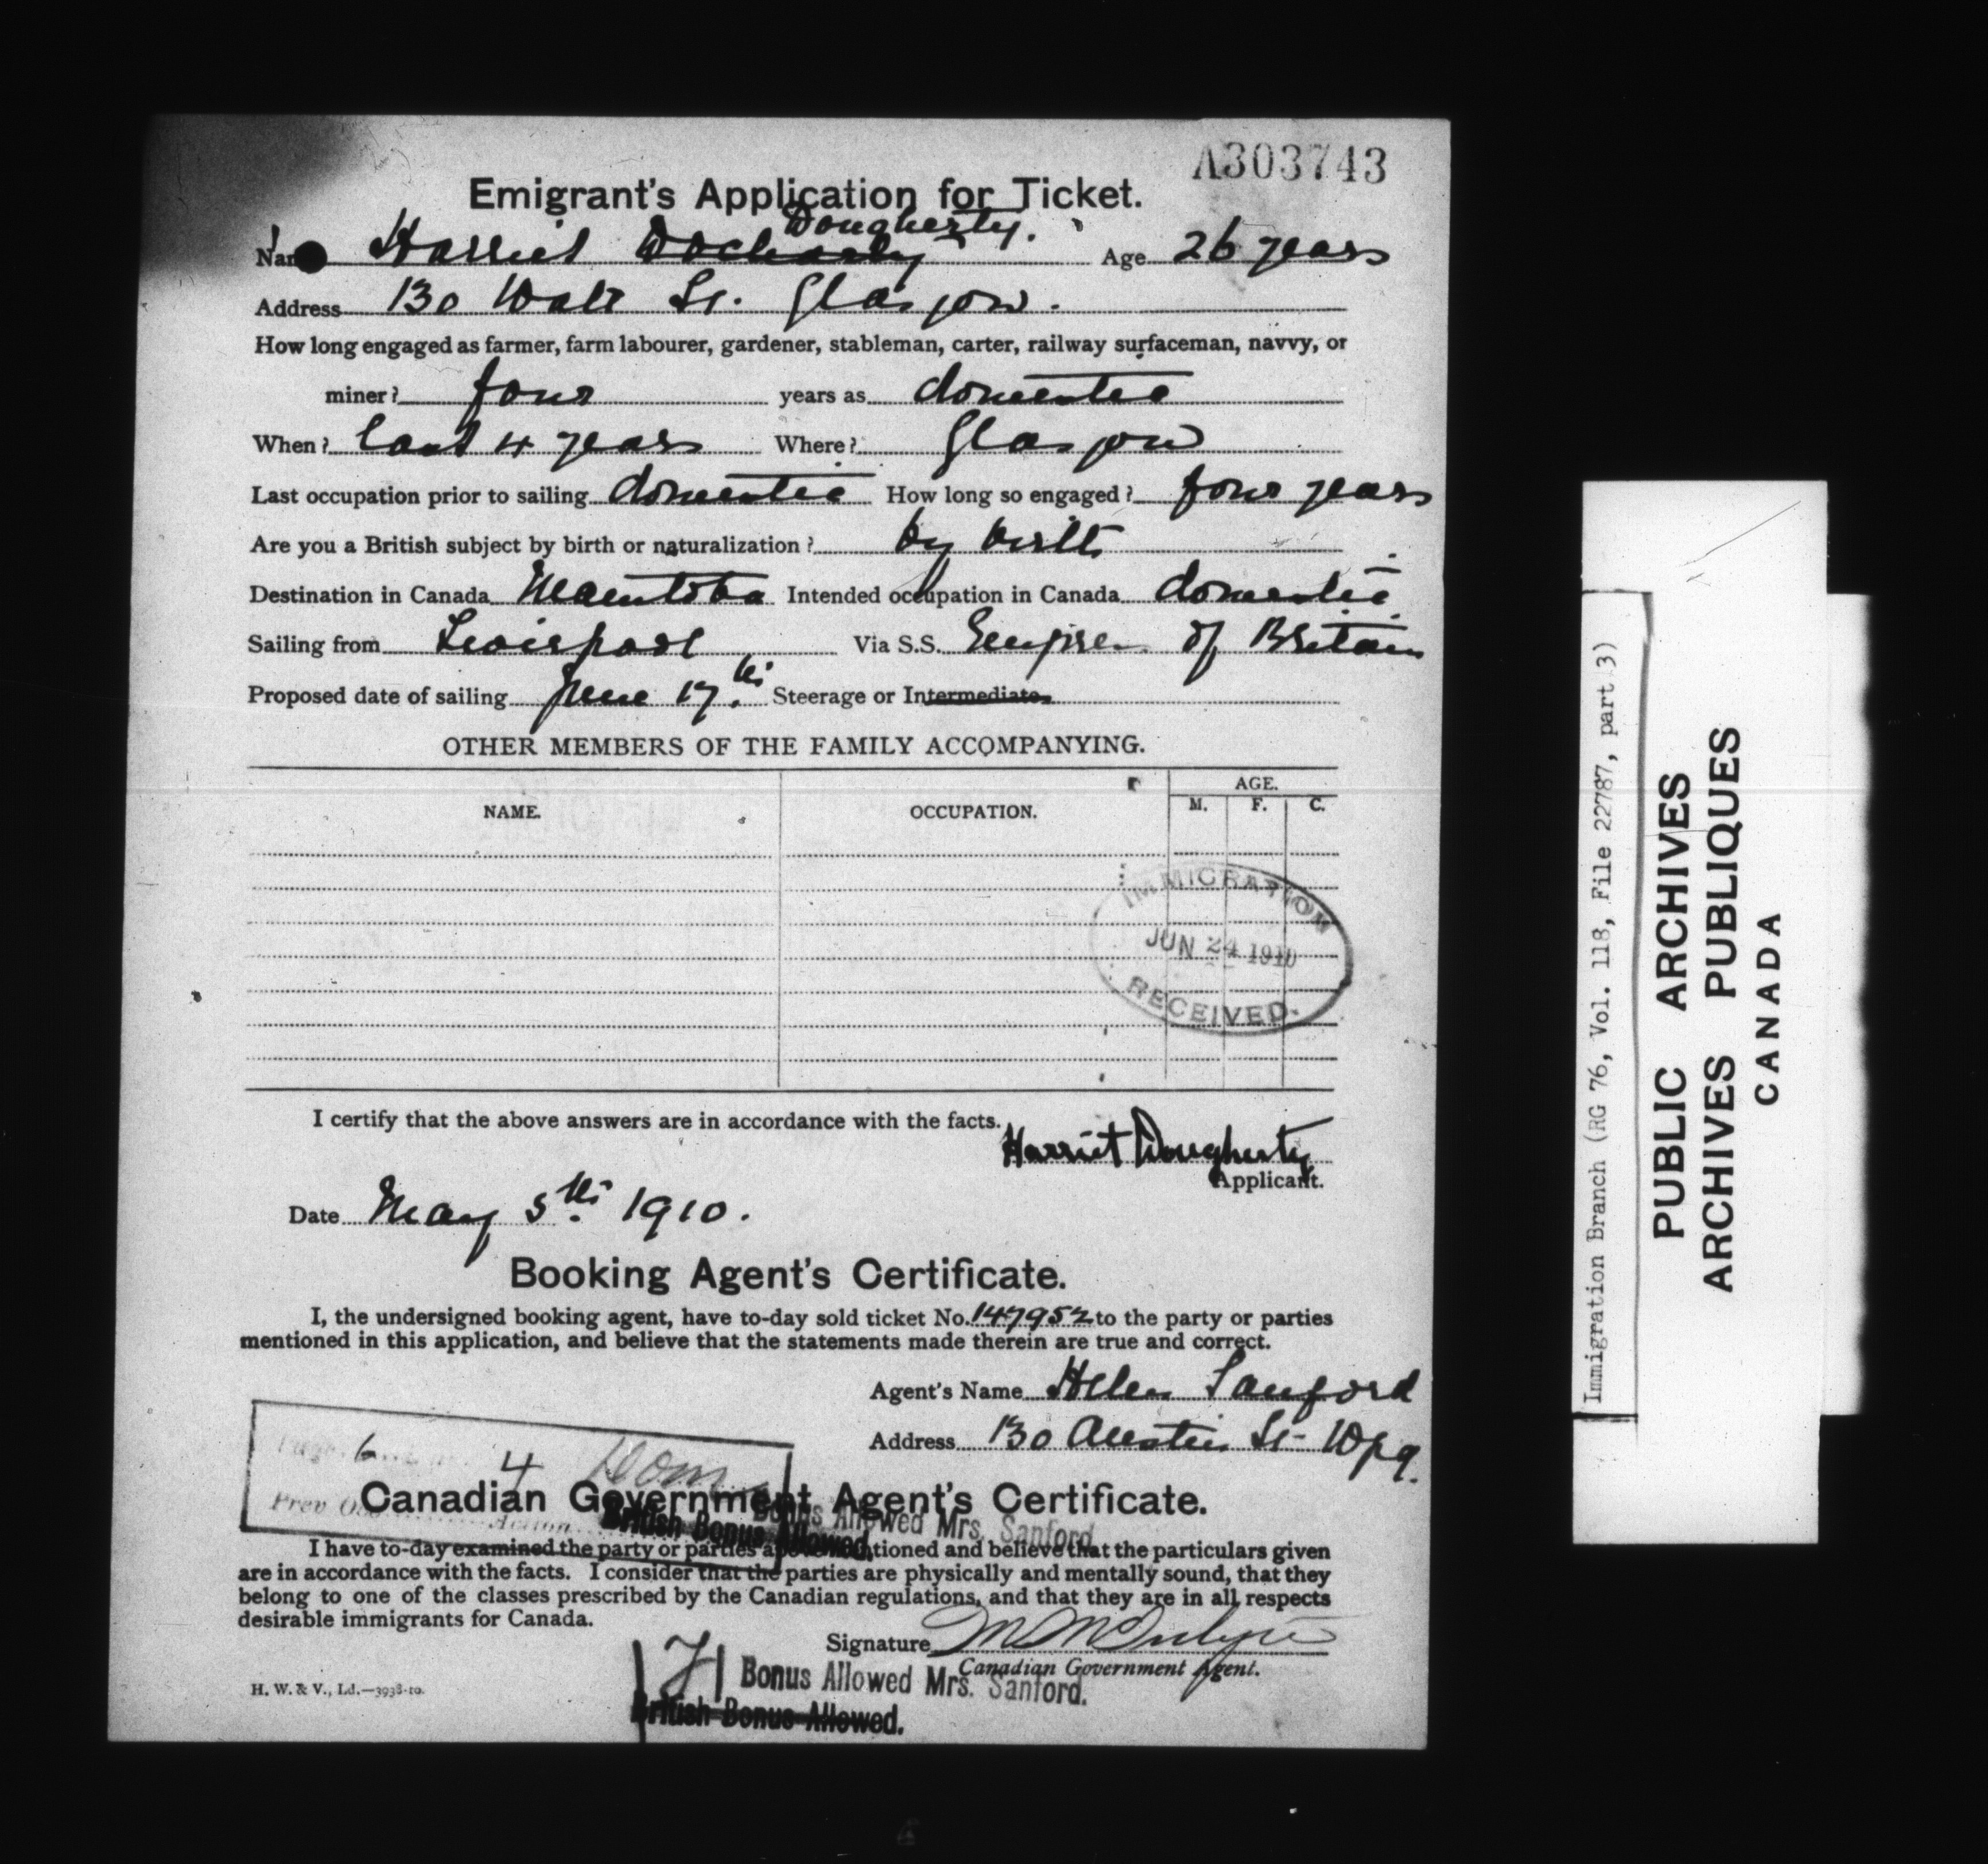 A303743
Emigrant's Application for Ticket.
Dougherty.
Name Harriet Docharty Age 26 years
Address 130 Watt St. Glasgow.
How long engaged as farmer, farm labourer, gardener, stableman, carter, railway surfaceman, navvy, or
miner? four years as domestic
When? last 4 years Where? Glasgow
Last occupation prior to sailing domestic How long so engaged? four years
Are you a British subject by birth or naturalization? by birth
Destination in Canada Manitoba Intended occupation in Canada domestic
Sailing from Liverpool Via S.S. Empress of Britain
Proposed date of sailing June 17th Steerage or Intermediate
OTHER MEMBERS OF THE FAMILY ACCOMPANYING.
AGE.
NAME. OCCUPATION. M. F. C.
IMMIGRATION
JUN 24 1910
RECEIVED.
I certify that the above answers are in accordance with the facts.
Harriet Dougherty
Applicant.
Date May 5th 1910.
Booking Agent's Certificate.
I, the undersigned booking agent, have to-day sold ticket No. 147952 to the party or parties
mentioned in this application, and believe that the statements made therein are true and correct.
Agent's Name Helen Sanford
Address 130 Austin St- Wpg.
6 4 Dom
Prev Occ
Action
Canadian Government Agent's Certificate.
Bonus Allowed Mrs. Sanford
British Bonus Allowed.
I have to-day examined the party or parties above mentioned and believe that the particulars given
are in accordance with the facts. I consider that the parties are physically and mentally sound, that they
belong to one of the classes prescribed by the Canadian regulations, and that they are in all respects
desirable immigrants for Canada.
Signature
Canadian Government Agent.
H. W. & V., Ld.—3938-10.
Bonus Allowed Mrs. Sanford.
British Bonus Allowed.
Immigration Branch (RG 76, Vol. 118, File 22787, part 3)
PUBLIC ARCHIVES
ARCHIVES PUBLIQUES
CANADA